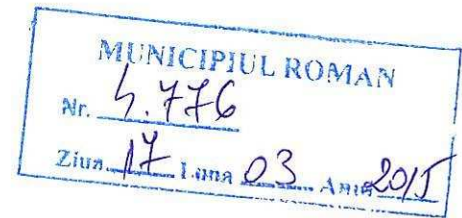 MUNICIPIUL ROMAN
Nr. 4.776
Ziua 17 Luna 03 Anul 2015